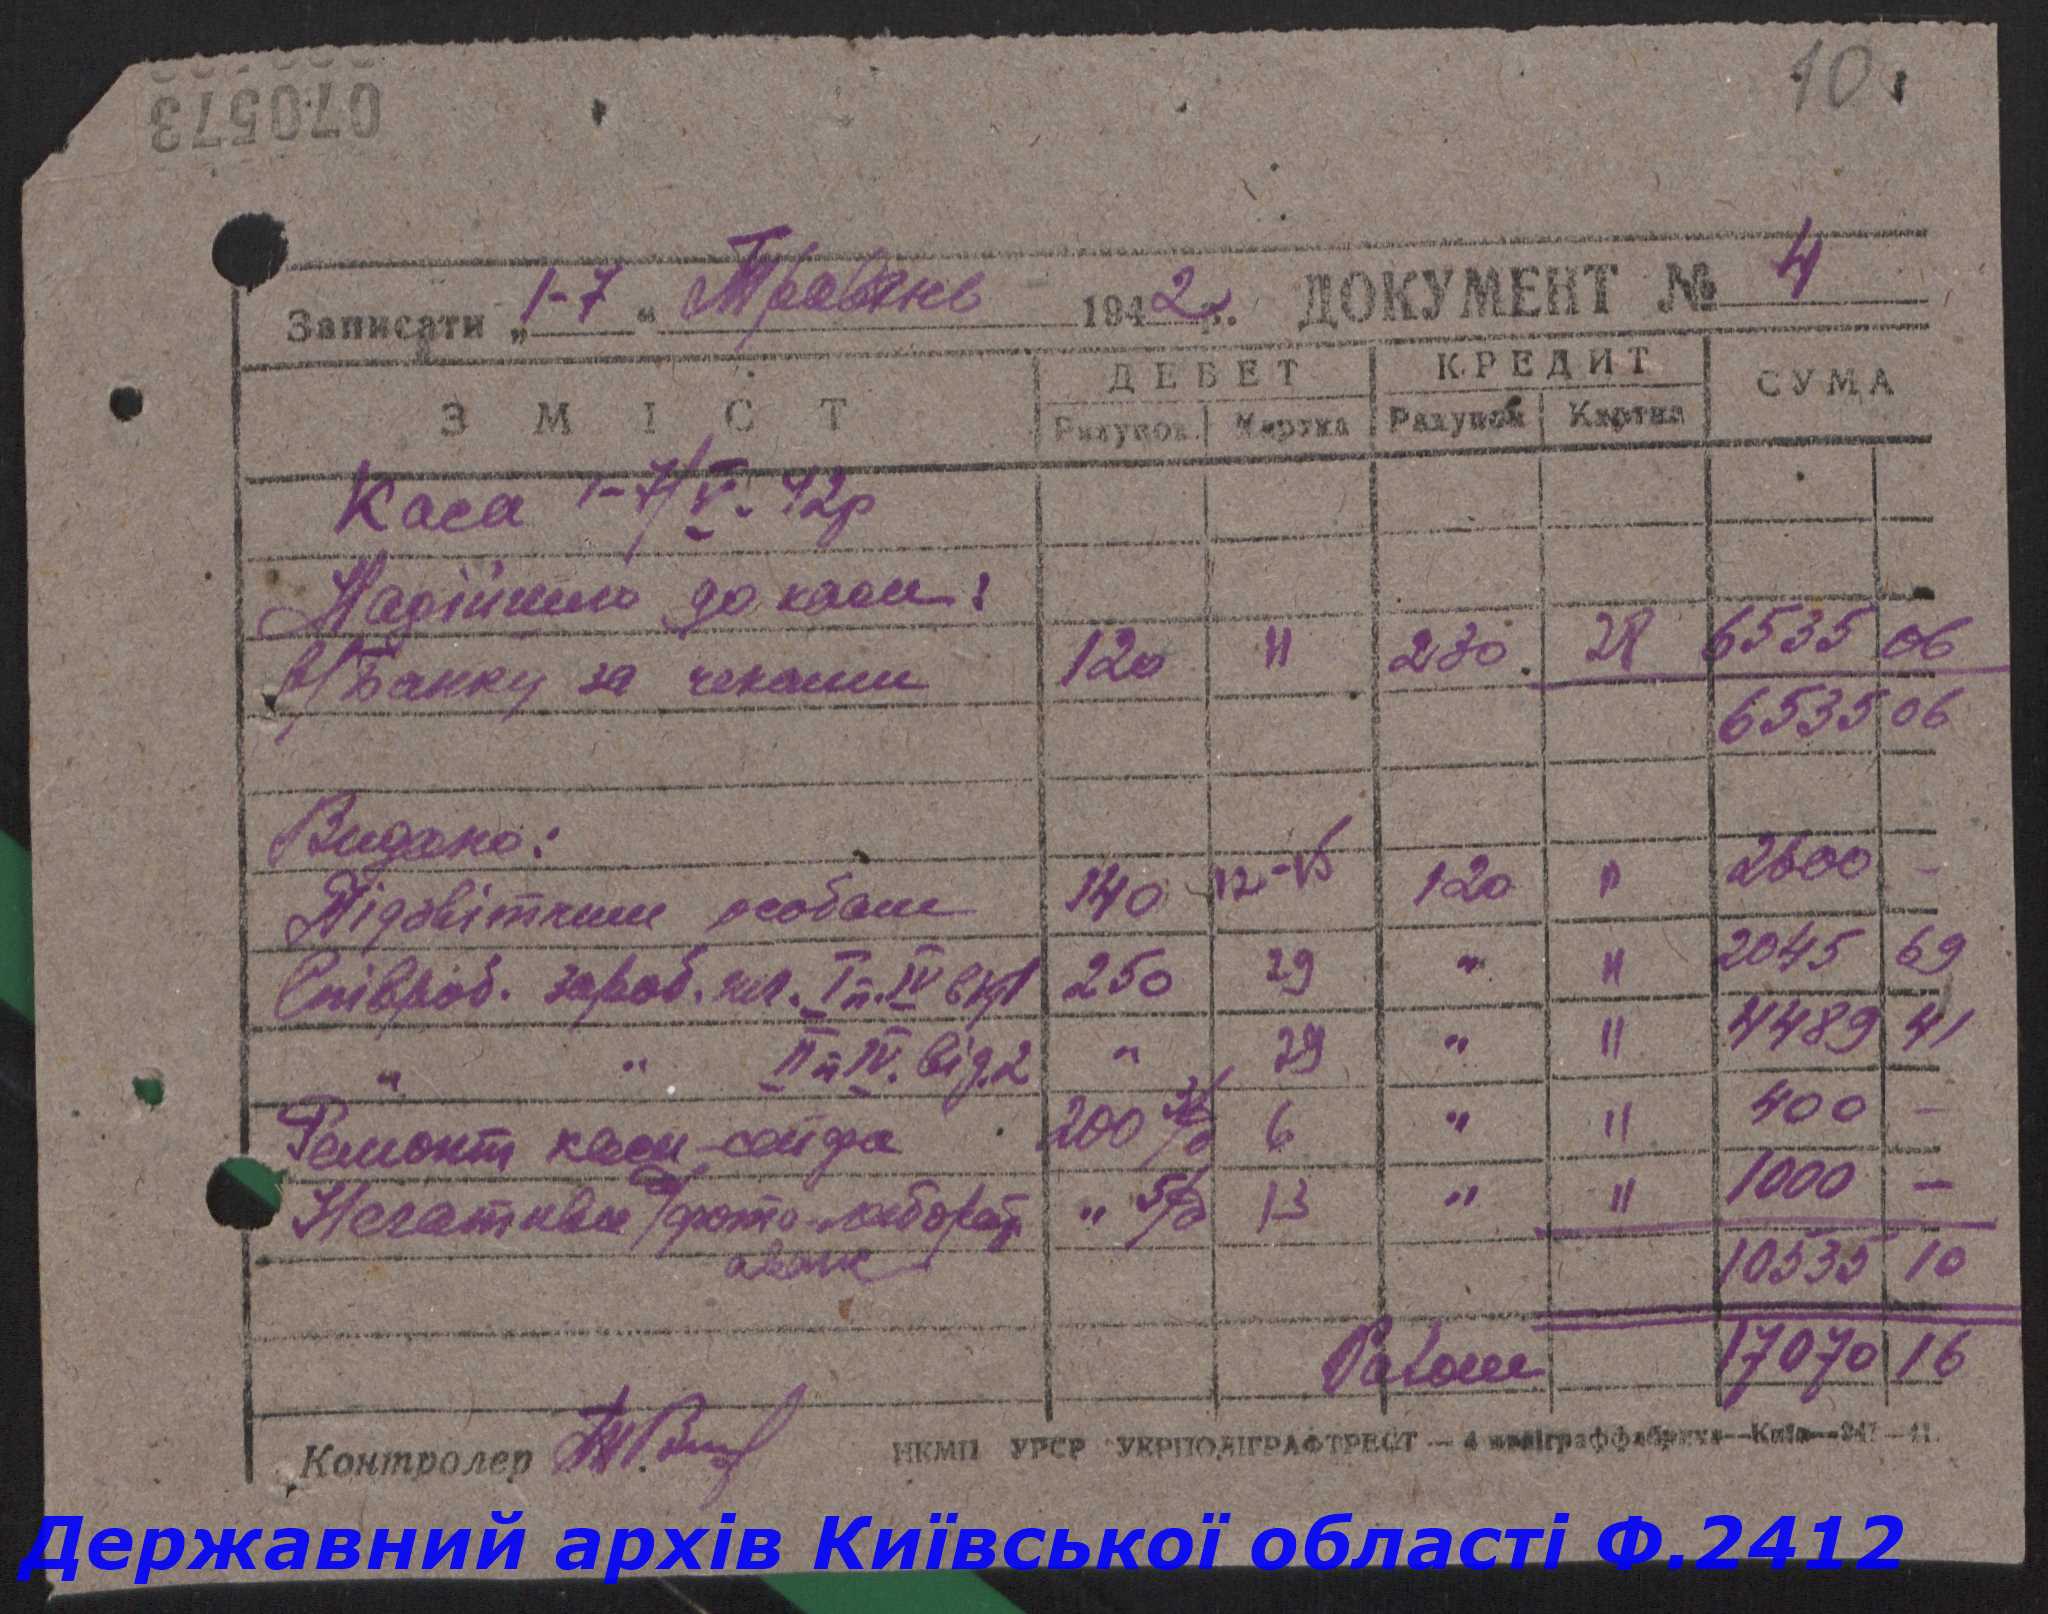 070573
10
Записати „1-7“ Травень 1942 р. ДОКУМЕНТ № 4
ЗМІСТ ДЕБЕТ КРЕДИТ СУМА
Рахунок Картка Рахунок Картка
Каса 1-7/V. 42р
Надійшло до каси:
З/Банку за чеками 120 " 230 28 6535 06
6535 06
Видано:
Підзвітним особам 140 12-15 120 " 2600 –
Співроб. зароб. пл. I п. IV 250 29 " " 2045 69
" " II п IV. від.2 " 29 " " 4489 41
Ремонт каси-сейфа 200 6 " " 400 –
Негативи фото-лаборат. " 5/ 13 " " 1000 –
аванс
10535 10
Разом 17070 16
Контролер
НКМП УРСР УКРПОЛІГРАФТРЕСТ – 4 поліграффабрика–Київ–247–41.
Державний архів Київської області Ф.2412